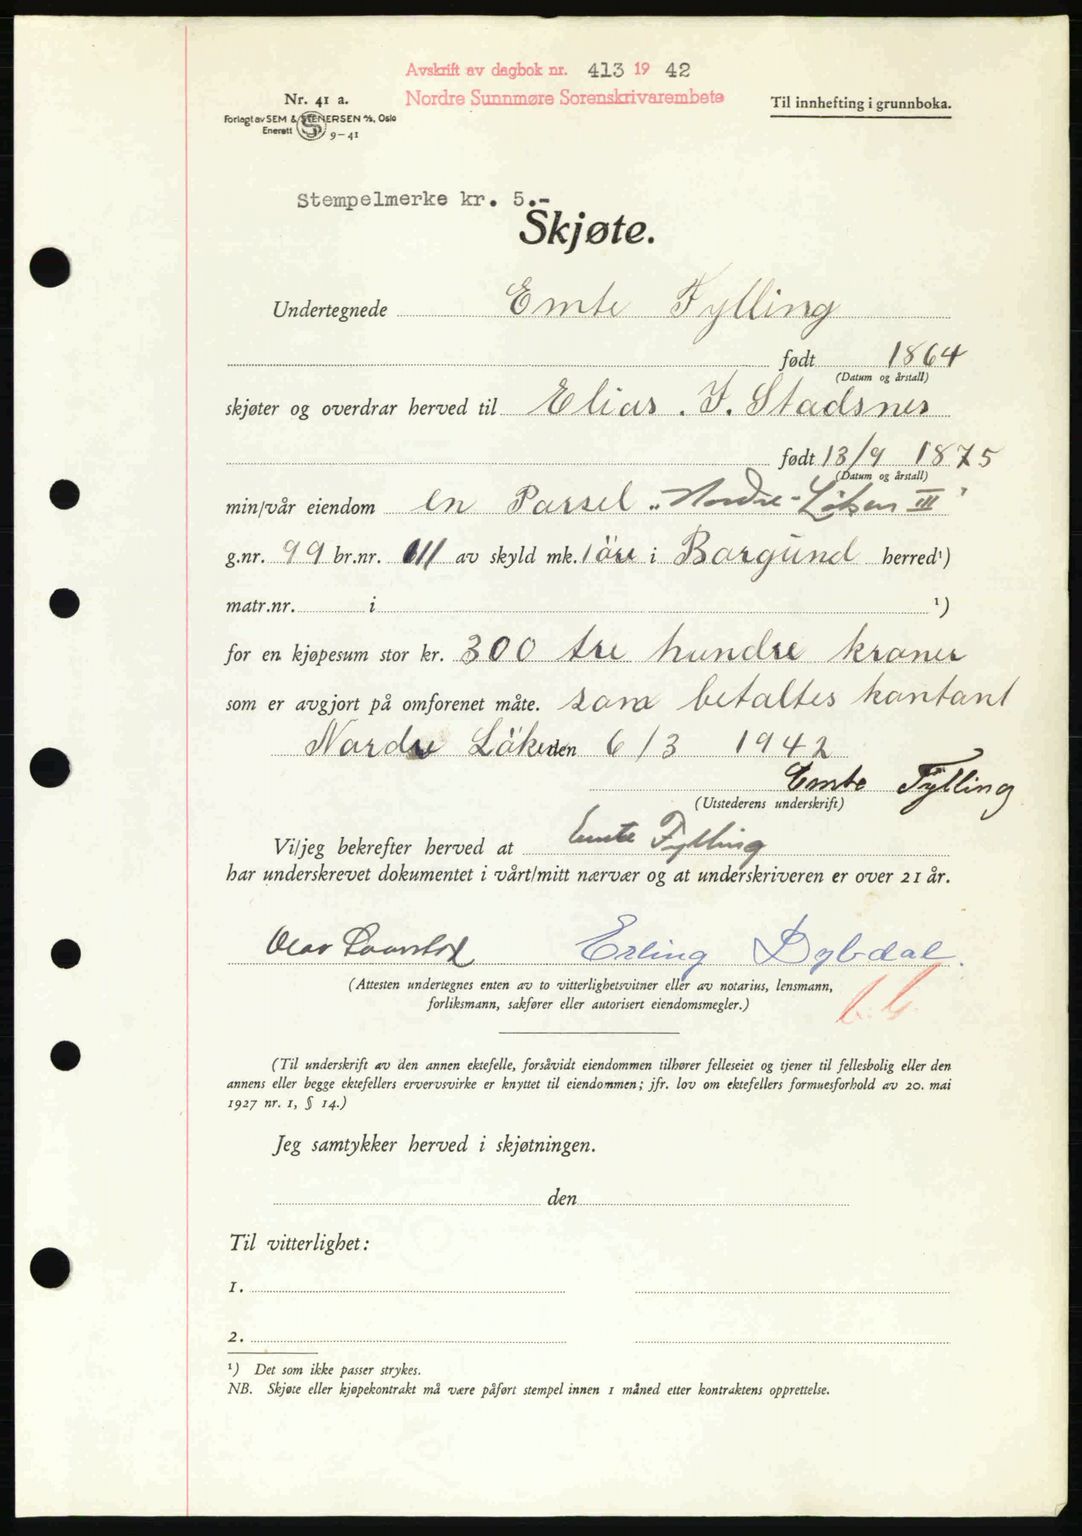 Avskrift av dagbok nr. 413 19 42
Nordre Sunnmøre Sorenskrivarembete
Nr. 41 a.
Til innhefting i grunnboka.
Forlagt av SEM & STENERSEN A/S, Oslo
Enerett 9-41
Stempelmerke kr. 5.-
Skjøte.
Undertegnede Emte Fylling
født 1864
(Datum og årstall)
skjøter og overdrar herved til Elias . I. Stadsnes
født 13/9 1875
(Datum og årstall)
min/vår eiendom en Parsel „Nordre-Löken III"
g.nr. 99 br.nr. 111 av skyld mk. 1 öre i Borgund herred¹)
matr.nr. i ¹)
for en kjøpesum stor kr. 300 tre hundre kroner
som er avgjort på omforenet måte. som betaltes kontant
Nordre Löken den 6/3 1942
Emte Fylling
(Utstederens underskrift)
Vi/jeg bekrefter herved at Emte Fylling
har underskrevet dokumentet i vårt/mitt nærvær og at underskriveren er over 21 år.
Olav Erling Dybdal.
(Attesten undertegnes enten av to vitterlighetsvitner eller av notarius, lensmann,
forliksmann, sakfører eller autorisert eiendomsmegler.)
(Til underskrift av den annen ektefelle, forsåvidt eiendommen tilhører felleseiet og tjener til fellesbolig eller den
annens eller begge ektefellers ervervsvirke er knyttet til eiendommen; jfr. lov om ektefellers formuesforhold av 20. mai
1927 nr. 1, § 14.)
Jeg samtykker herved i skjøtningen.
den
Til vitterlighet:
1.
2.
¹) Det som ikke passer strykes.
NB. Skjøte eller kjøpekontrakt må være påført stempel innen 1 måned etter kontraktens opprettelse.